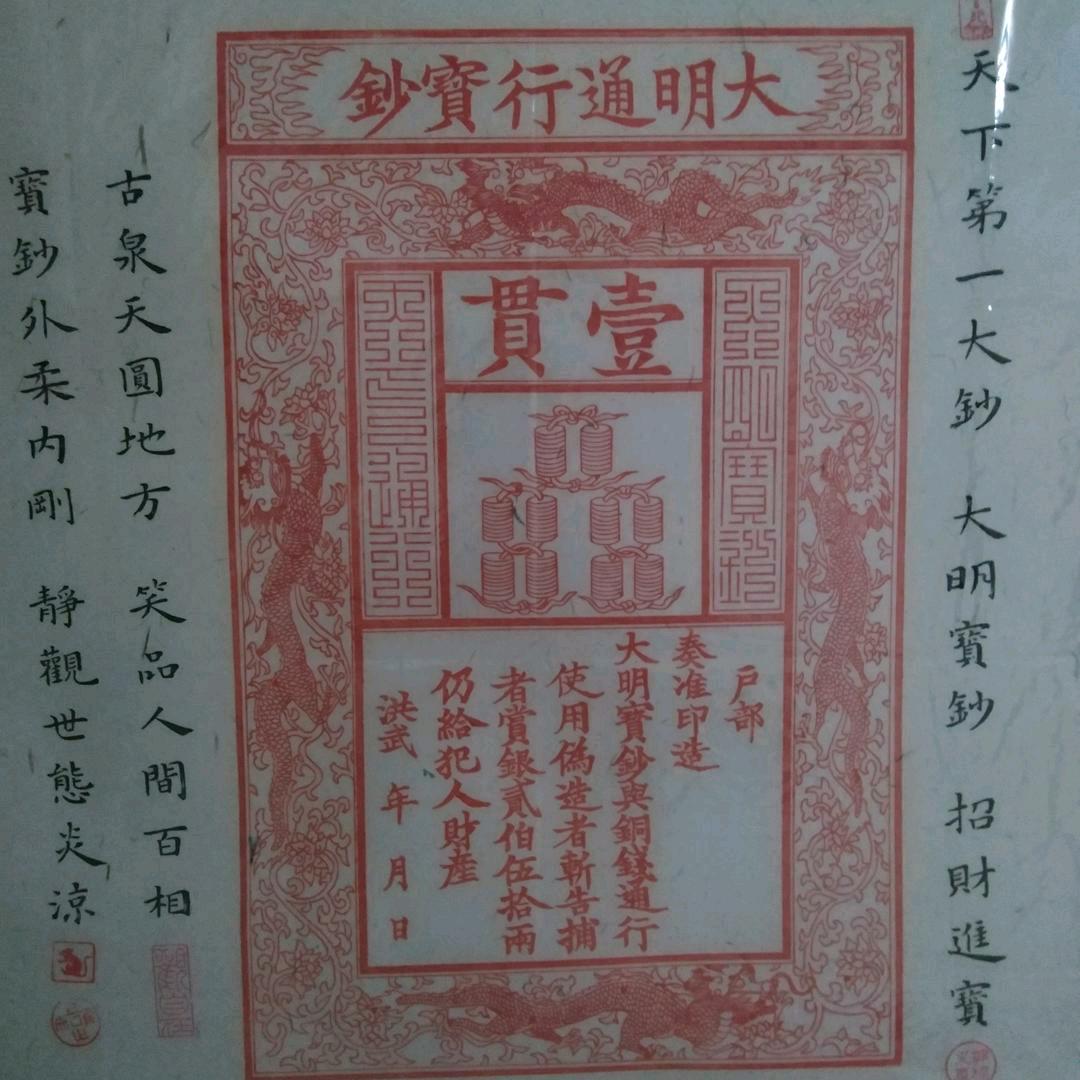 天下第一大鈔 大明寶鈔 招財進寶
大明通行寶鈔
壹貫
大明寶鈔
天下通行
戶部
奏准印造
大明寶鈔與銅錢通行
使用偽造者斬告捕
者賞銀貳伯伍拾兩
仍給犯人財產
洪武 年 月 日
古泉天圓地方 笑品人間百相
寶鈔外柔內剛 靜觀世態炎涼